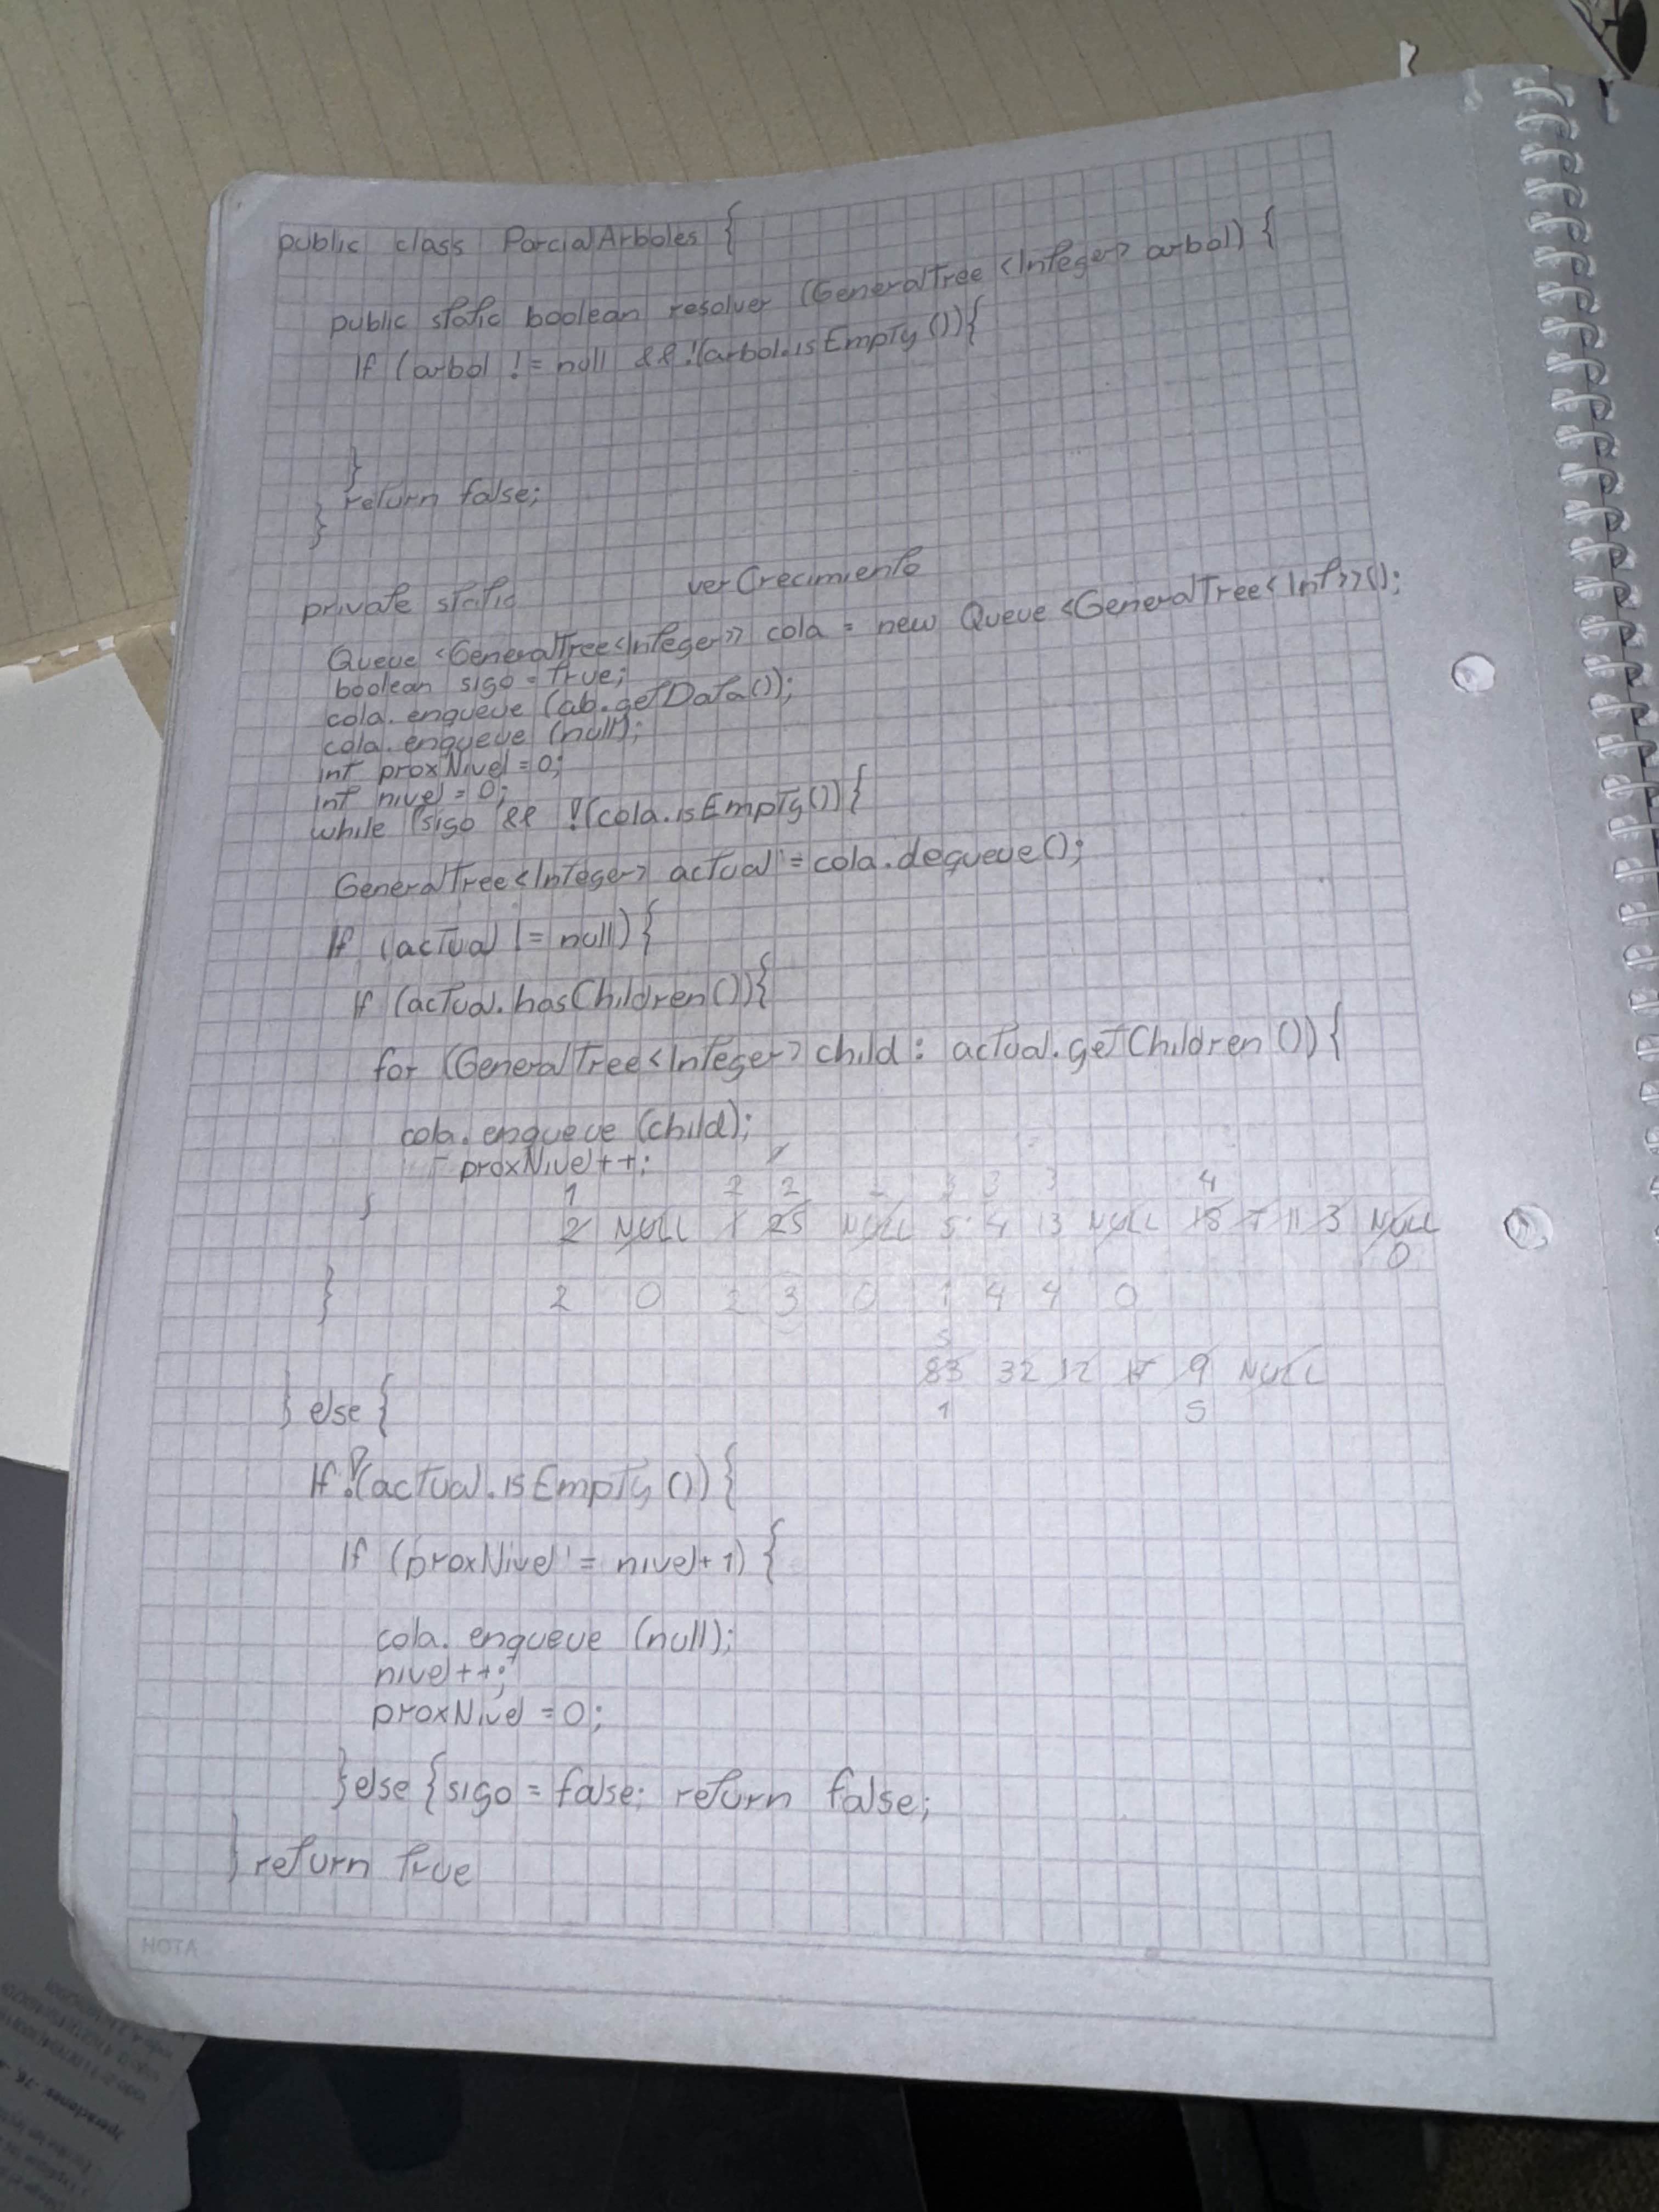 public class ParcialArboles {
public static boolean resolver (GeneralTree <Integer> arbol) {
If (arbol != null && !(arbol.isEmpty ()){
}
return false;
}
private static verCrecimiento
Queue <GeneralTree<Integer>> cola = new Queue <GeneralTree<Int>>();
boolean sigo = true;
cola. enqueue (ab.getData());
cola. enqueue (null);
int proxNivel = 0;
int nivel = 0;
while (sigo && !(cola.isEmpty()){
GeneralTree<Integer> actual = cola.dequeue();
If (actual != null){
If (actual.hasChildren()){
for (GeneralTree<Integer> child : actual.getChildren ()){
cola. enqueue (child);
proxNivel++;
1 2 2 3 3 3 4
} 2 NULL 1 25 NULL 5 4 13 NULL 18 7 11 3 NULL
0
} 2 0 2 3 0 1 4 4 0
5
83 32 12 17 9 NULL
} else { 1 5
If !(actual.isEmpty ()){
If (proxNivel = nivel+1) {
cola. enqueue (null);
nivel++;
proxNivel = 0;
}else {sigo = false; return false;
} return true
NOTA